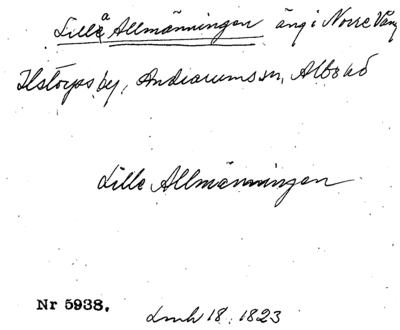 Lilla Allmänningen äng i Norre Vång
Ilstorps by, Andrarums sn, Albo hd
Lille Allmänningen
Nr 5938. Lmh 18. 1823